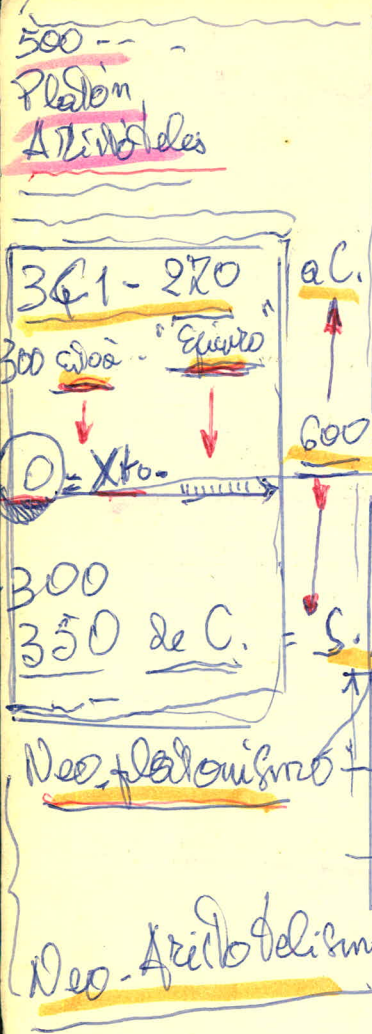 500 -- -
Platón
Aristóteles
341 - 270 a C.
300 "Epicuro"
600
0 - Xto.
300
350 de C. = S.
Neo-platonismo
Neo-Aristotelism